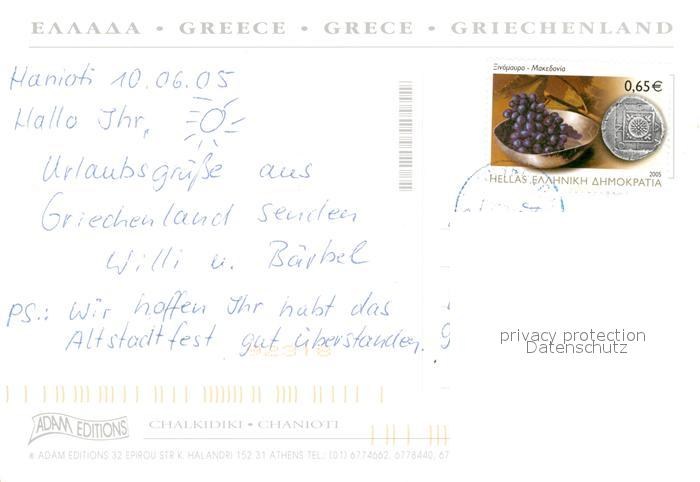 ΕΛΛΑΔΑ • GREECE • GRECE • GRIECHENLAND
Hanioti 10.06.05
Hallo Ihr,
Urlaubsgrüße aus
Griechenland senden
Willi u. Bärbel
PS.: Wir hoffen Ihr habt das
Altstadtfest gut überstanden.
Ξινόμαυρο - Μακεδονία
0,65€
2005
HELLAS ΕΛΛΗΝΙΚΗ ΔΗΜΟΚΡΑΤΙΑ
privacy protection
Datenschutz
92318
ADAM EDITIONS
CHALKIDIKI • CHANIOTI
® ADAM EDITIONS 32 EPIROU STR K. HALANDRI 152 31 ATHENS TEL.: (01) 6774662, 6778440, 67